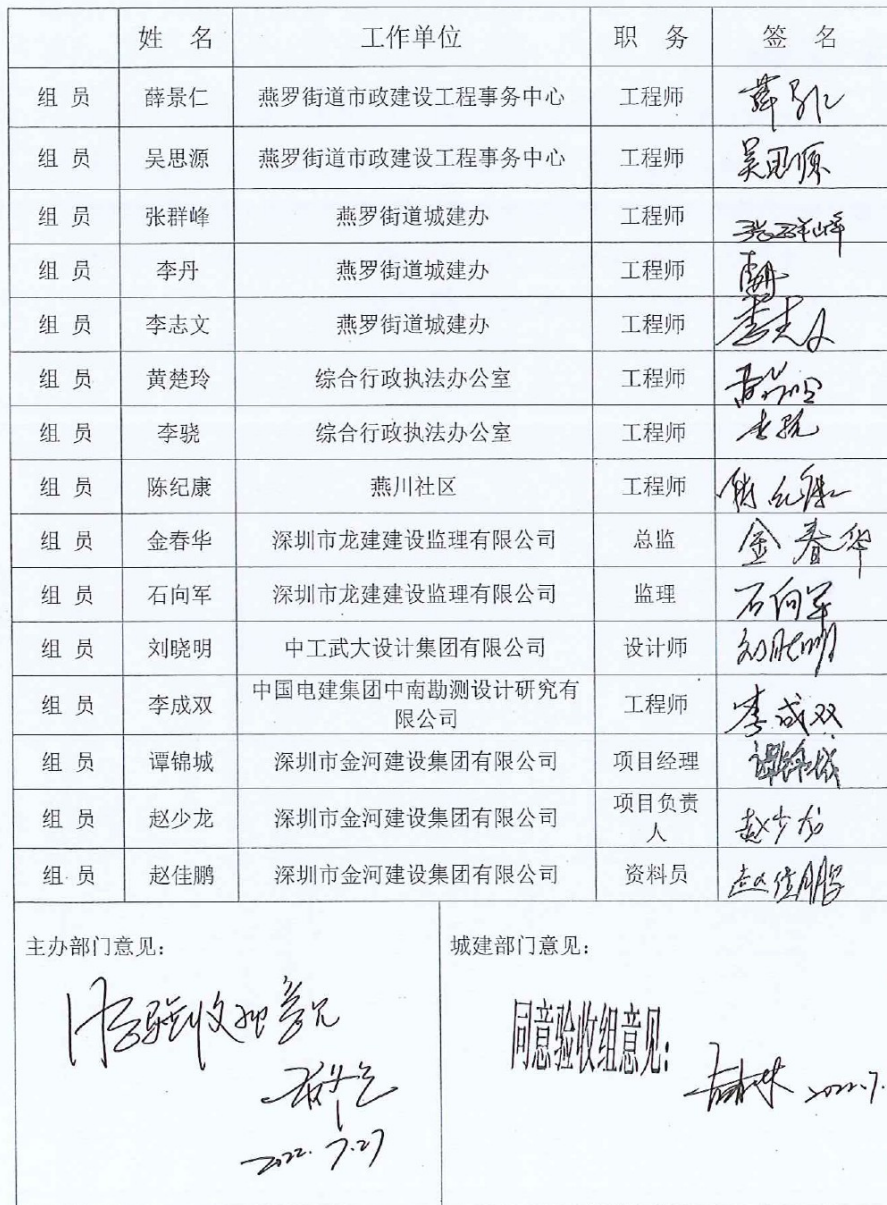 姓 名 工作单位 职 务 签 名
组 员 薛景仁 燕罗街道市政建设工程事务中心 工程师
组 员 吴思源 燕罗街道市政建设工程事务中心 工程师 吴思源
组 员 张群峰 燕罗街道城建办 工程师 张群峰
组 员 李丹 燕罗街道城建办 工程师
组 员 李志文 燕罗街道城建办 工程师 李志文
组 员 黄楚玲 综合行政执法办公室 工程师
组 员 李骁 综合行政执法办公室 工程师
组 员 陈纪康 燕川社区 工程师 陈纪康
组 员 金春华 深圳市龙建建设监理有限公司 总监 金春华
组 员 石向军 深圳市龙建建设监理有限公司 监理 石向军
组 员 刘晓明 中工武大设计集团有限公司 设计师 刘晓明
组 员 李成双 中国电建集团中南勘测设计研究有
限公司 工程师 李成双
组 员 谭锦城 深圳市金河建设集团有限公司 项目经理 谭锦城
组 员 赵少龙 深圳市金河建设集团有限公司 项目负责
人 赵少龙
组 员 赵佳鹏 深圳市金河建设集团有限公司 资料员 赵佳鹏
主办部门意见：
同意验收组意见
2022.7.27
城建部门意见：
同意验收组意见：
2022.7.